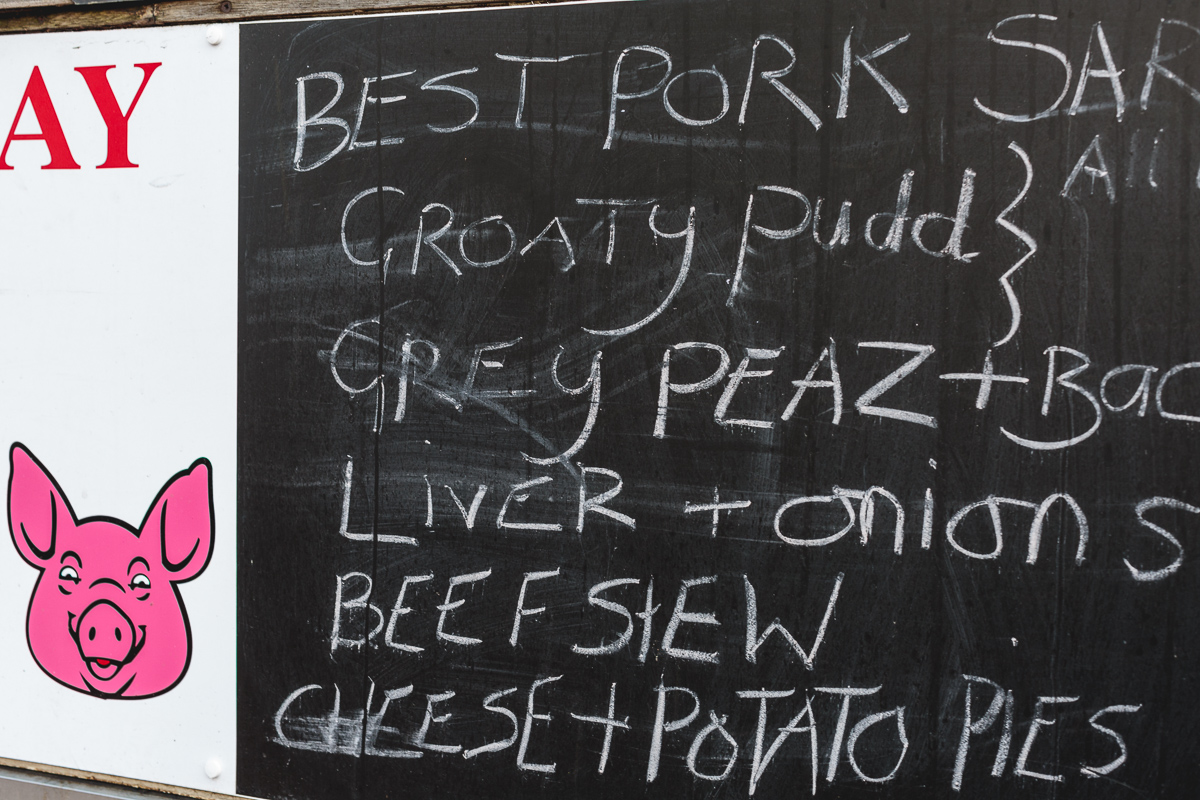 AY
BEST PORK SAR
All
GROATY Pudd
GREY PEAZ + Bac
LiVER + Onions
BEEF StEW
CHEESE + POTATO PIES